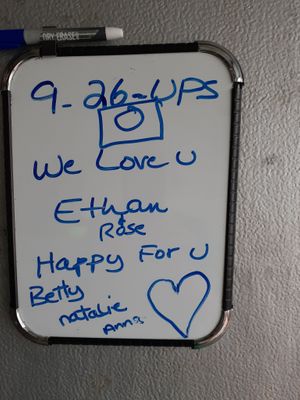 DRY ERASE
9-26-UPS
We Love U
Ethan
Rose
Happy For U
Betty
natalie
Anna